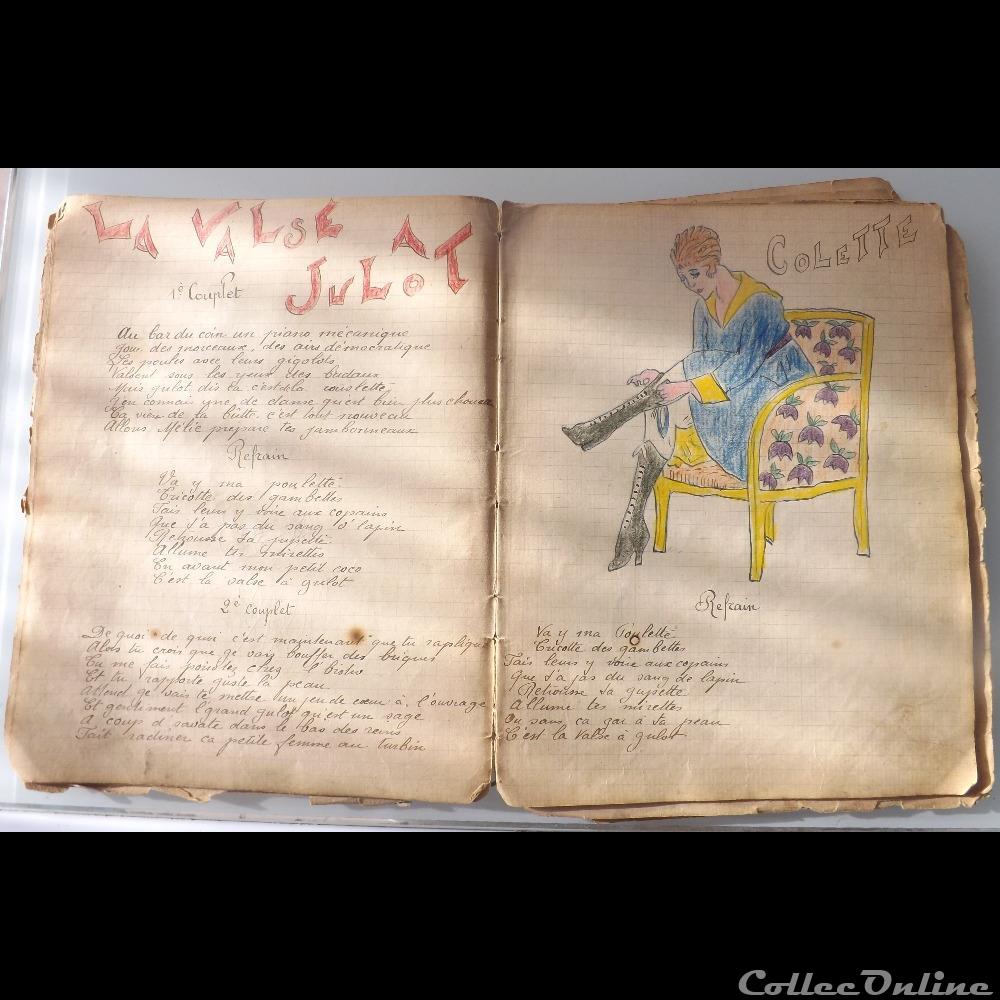 LA VALSE AT
JULOT
1e Couplet
Au bar du coin un piano mécanique
Joue des morceaux, des airs démocratique
Des poules avec leurs gigolots
Valsent sous les yeux des badaux
Mais gulot dis la c'est de la roulette
J'en connais une de danse qu'est bien plus chouette
Ça vien de la butte c'est tout nouveau
Allons Mélie prepare tes jambonneaux
Refrain
Va y ma poulette
Tricotte des gambettes
Fais leurs y voire aux copains
Que t'a pas du sang d'lapin
Retrousse ta jupette
Allume tes mirettes
En avant mon petit coco
C'est la valse à gulot
2e couplet
De quoi de quoi c'est maintenant que tu rapplique
Alors tu crois que ge vais bouffer des briques
Tu me fais poiroter chez l'bistro
Et tu rapporte guste la peau
Attend ge vais te mettre un peu de cœur à l'ouvrage
Et gentiment l'grand gulot qu'est un sage
A coup d'savate dans le bas des reins
Fait radiner ça petite femme au turbin
COLETTE
Refrain
Va y ma Poulette
Tricotte des gambettes
Fais leurs y voire aux copains
Que t'a pas du sang de lapin
Retrousse ta gupette
Allume tes mirettes
Ou sans ça gar à ta peau
C'est la valse à gulot
CollecOnline